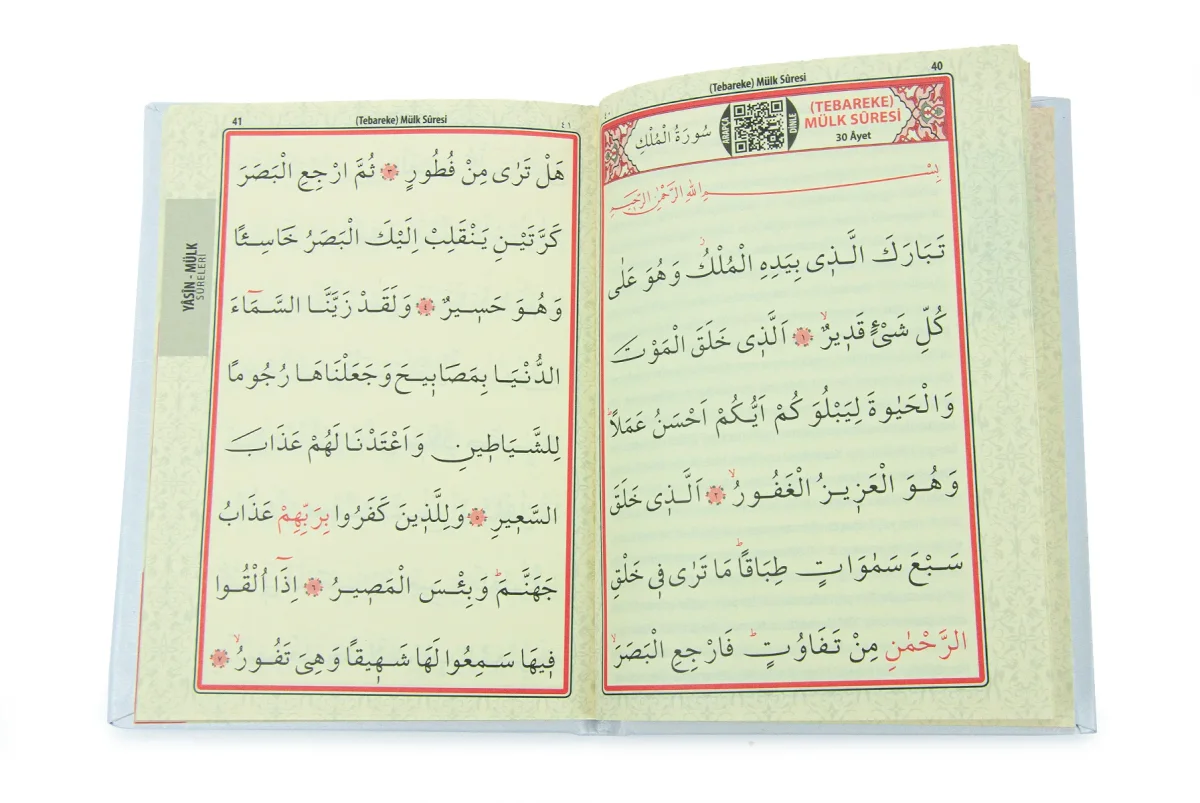 40
(Tebareke) Mülk Sûresi
٤٠
(TEBAREKE)
MÜLK SÛRESİ
30 Âyet
ARAPÇA
DİNLE
سُورَةُ الْمُلْكِ
بِسْمِ اللّٰهِ الرَّحْمٰنِ الرَّحٖيمِ
تَبَارَكَ الَّذٖى بِيَدِهِ الْمُلْكُۘ وَهُوَ عَلٰى
كُلِّ شَىْءٍ قَدٖيرٌۙ ﴿١﴾ اَلَّذٖى خَلَقَ الْمَوْتَ
وَالْحَيٰوةَ لِيَبْلُوَكُمْ اَيُّكُمْ اَحْسَنُ عَمَلًاۜ
وَهُوَ الْعَزٖيزُ الْغَفُورُۙ ﴿٢﴾ اَلَّذٖى خَلَقَ
سَبْعَ سَمٰوَاتٍ طِبَاقًاۜ مَا تَرٰى فٖى خَلْقِ
الرَّحْمٰنِ مِنْ تَفَاوُتٍۜ فَارْجِعِ الْبَصَرَۙ
41
(Tebareke) Mülk Sûresi
٤١
YÂSÎN - MÜLK
SÛRELERİ
هَلْ تَرٰى مِنْ فُطُورٍ ﴿٣﴾ ثُمَّ ارْجِعِ الْبَصَرَ
كَرَّتَيْنِ يَنْقَلِبْ اِلَيْكَ الْبَصَرُ خَاسِئًا
وَهُوَ حَسٖيرٌ ﴿٤﴾ وَلَقَدْ زَيَّنَّا السَّمَٓاءَ
الدُّنْيَا بِمَصَابٖيحَ وَجَعَلْنَاهَا رُجُومًا
لِلشَّيَاطٖينِ وَاَعْتَدْنَا لَهُمْ عَذَابَ
السَّعٖيرِ ﴿٥﴾ وَلِلَّذٖينَ كَفَرُوا بِرَبِّهِمْ عَذَابُ
جَهَنَّمَۜ وَبِئْسَ الْمَصٖيرُ ﴿٦﴾ اِذَٓا اُلْقُوا
فٖيهَا سَمِعُوا لَهَا شَهٖيقًا وَهِىَ تَفُورُۙ ﴿٧﴾